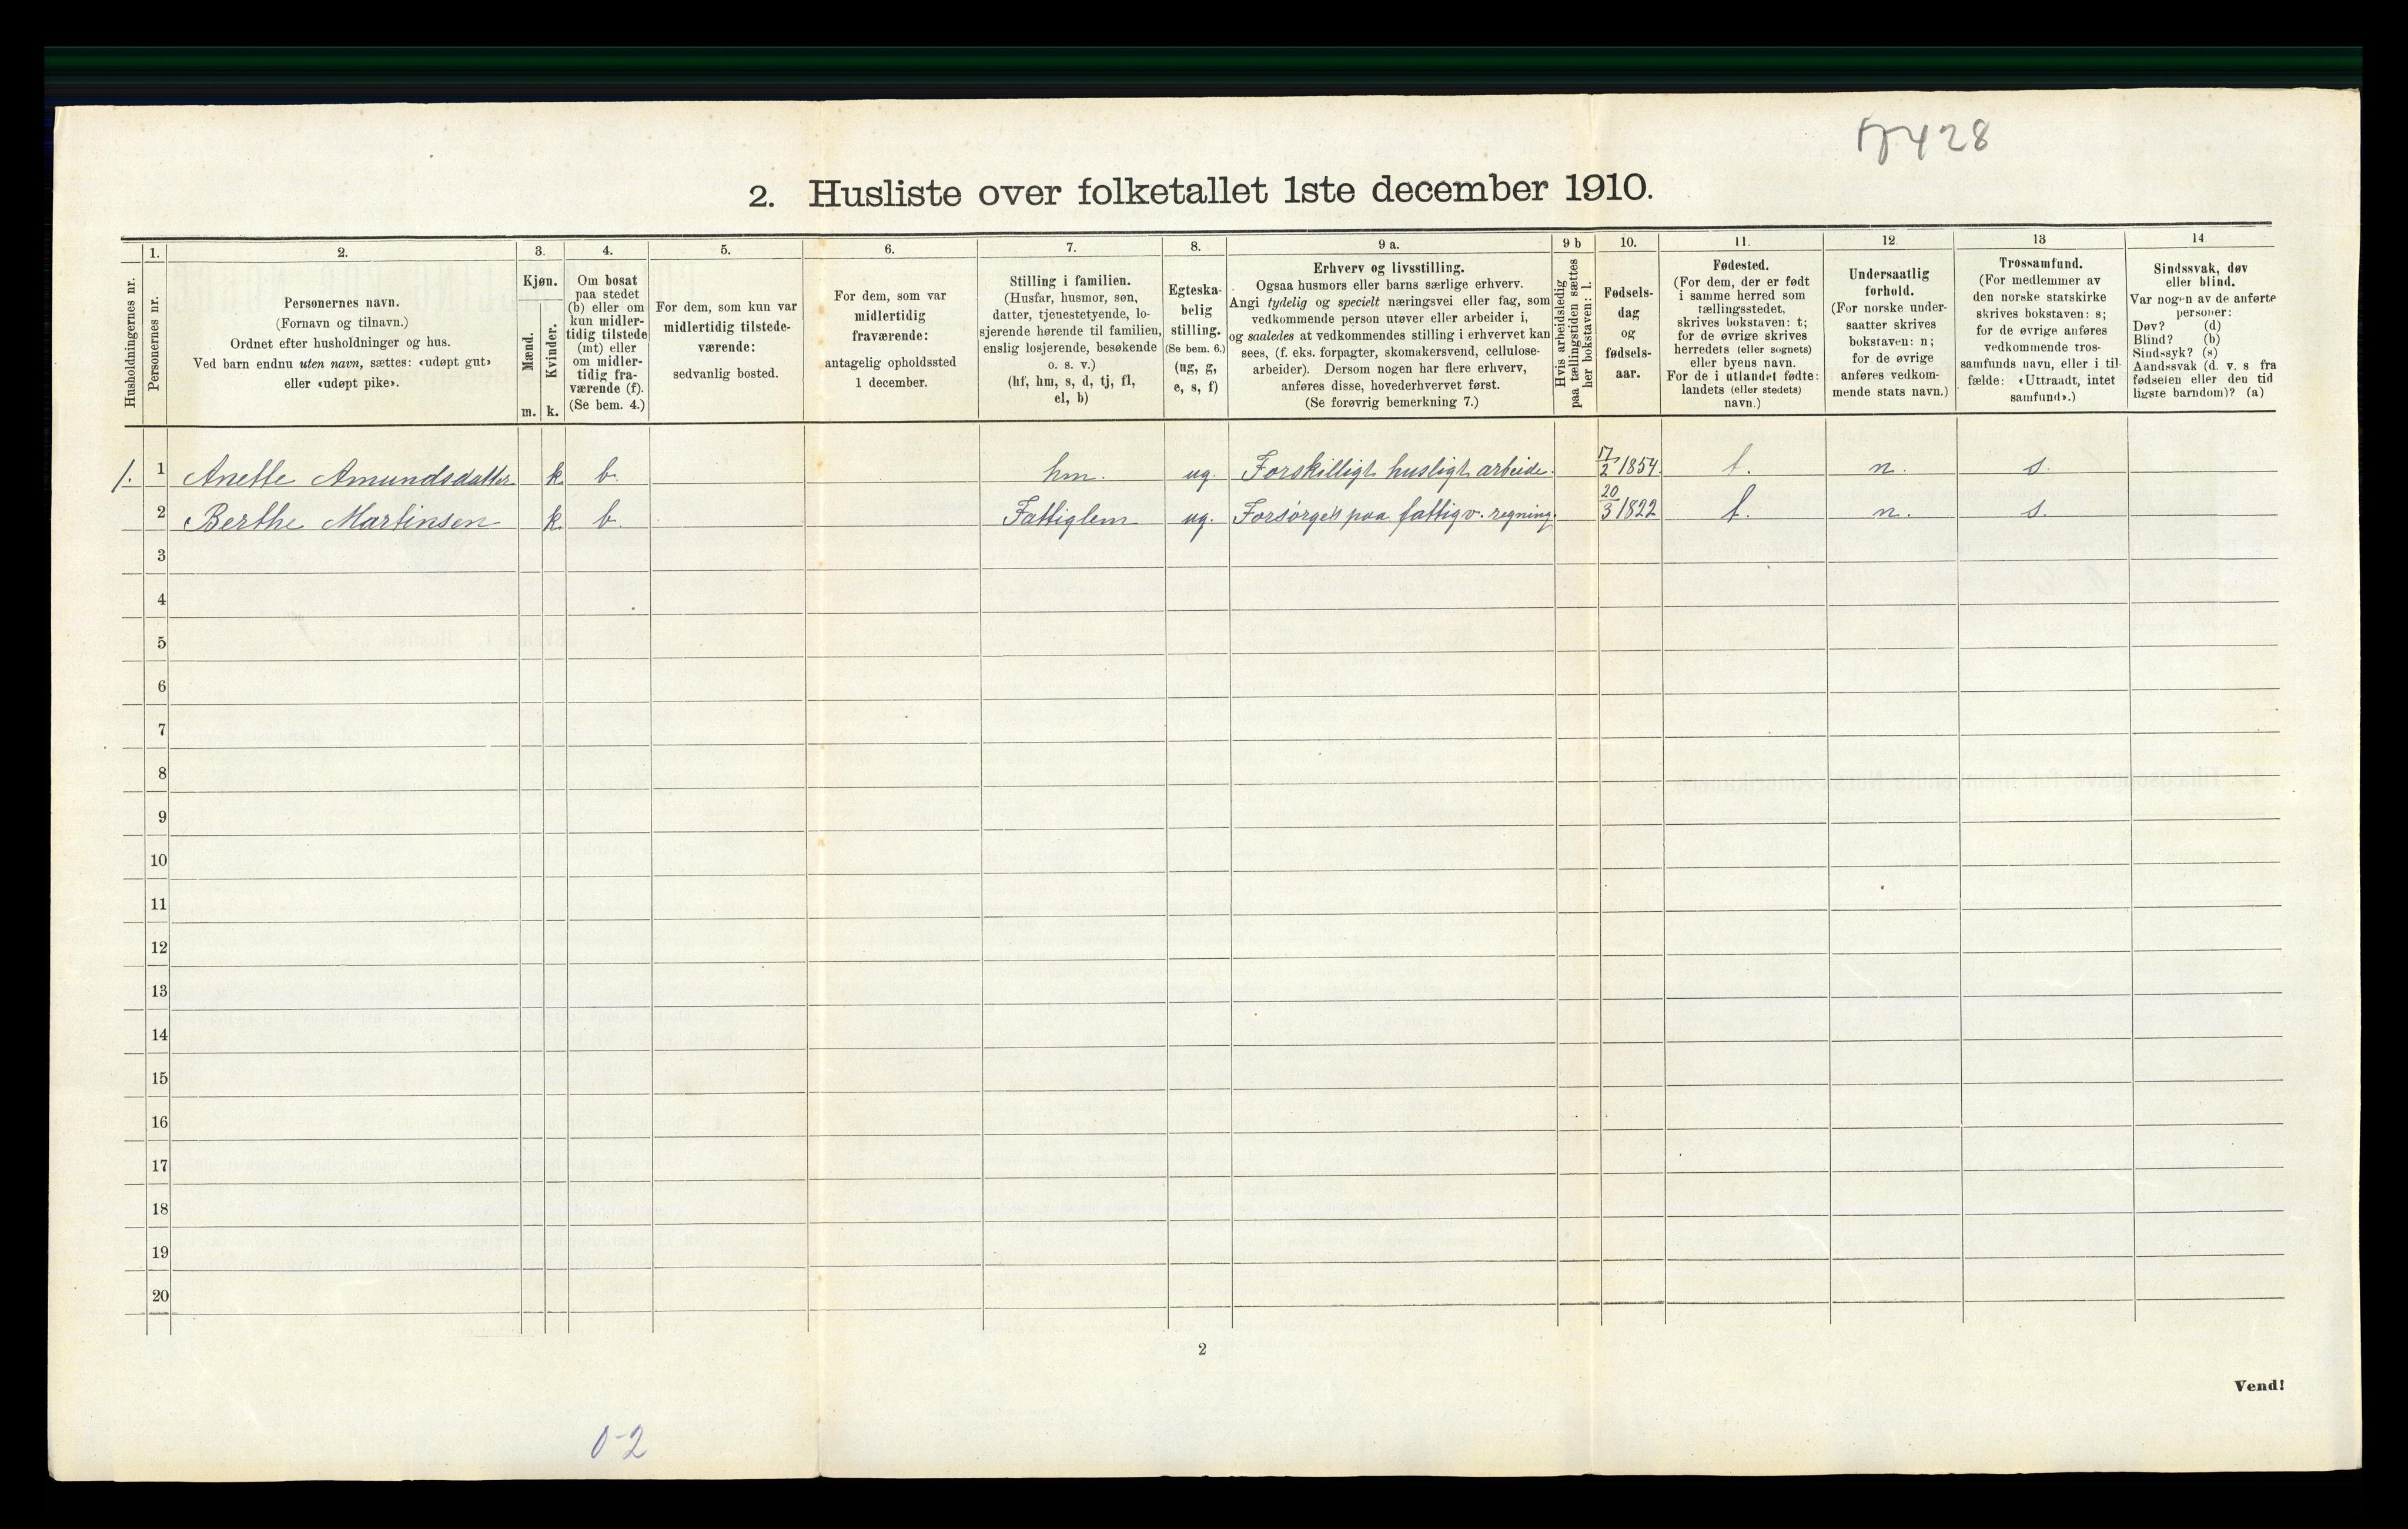 428
2. Husliste over folketallet 1ste december 1910.
Husholdningernes nr.
1.
Personernes nr.
2.
Personernes navn.
(Fornavn og tilnavn.)
Ordnet efter husholdninger og hus.
Ved barn endnu uten navn, sættes: «udøpt gut»
eller «udøpt pike».
3.
Kjøn.
Mænd.
m.
Kvinder.
k.
4.
Om bosat
paa stedet
(b) eller om
kun midler-
tidig tilstede
(mt) eller
om midler-
tidig fra-
værende (f).
(Se bem. 4.)
5.
For dem, som kun var
midlertidig tilstede-
værende:
sedvanlig bosted.
6.
For dem, som var
midlertidig
fraværende:
antagelig opholdssted
1 december.
7.
Stilling i familien.
(Husfar, husmor, søn,
datter, tjenestetyende, lo-
sjerende hørende til familien,
enslig losjerende, besøkende
o. s. v.)
(hf, hm, s, d, tj, fl,
el, b)
8.
Egteska-
belig
stilling.
(Se bem. 6.)
(ug, g,
e, s, f)
9 a.
Erhverv og livsstilling.
Ogsaa husmors eller barns særlige erhverv.
Angi tydelig og specielt næringsvei eller fag, som
vedkommende person utøver eller arbeider i,
og saaledes at vedkommendes stilling i erhvervet kan
sees, (f. eks. forpagter, skomakersvend, cellulose-
arbeider). Dersom nogen har flere erhverv,
anføres disse, hovederhvervet først.
(Se forøvrig bemerkning 7.)
9 b
Hvis arbeidsledig
paa tællingstiden sættes
her bokstaven: l.
10.
Fødsels-
dag
og
fødsels-
aar.
11.
Fødested.
(For dem, der er født
i samme herred som
tællingsstedet,
skrives bokstaven: t;
for de øvrige skrives
herredets (eller sognets)
eller byens navn.
For de i utlandet fødte:
landets (eller stedets)
navn.)
12.
Undersaatlig
forhold.
(For norske under-
saatter skrives
bokstaven: n;
for de øvrige
anføres vedkom-
mende stats navn.)
13
Trossamfund.
(For medlemmer av
den norske statskirke
skrives bokstaven: s;
for de øvrige anføres
vedkommende tros-
samfunds navn, eller i til-
fælde: «Uttraadt, intet
samfund».)
14
Sindssvak, døv
eller blind.
Var nogen av de anførte
personer:
Døv? (d)
Blind? (b)
Sindssyk? (s)
Aandssvak (d. v. s fra
fødselen eller den tid
ligste barndom)? (a)
1. 1 Anette Amundsdatter k b. hm. ug. Forskilligt husligt arbeide. 17/2 1854. t. n. s.
2 Berthe Martinsen k b Fattiglem ug. Forsörges paa fattigv. regning. 20/3 1822 t. n. s.
3
4
5
6
7
8
9
10
11
12
13
14
15
16
17
18
19
20
2
Vend!
0-2